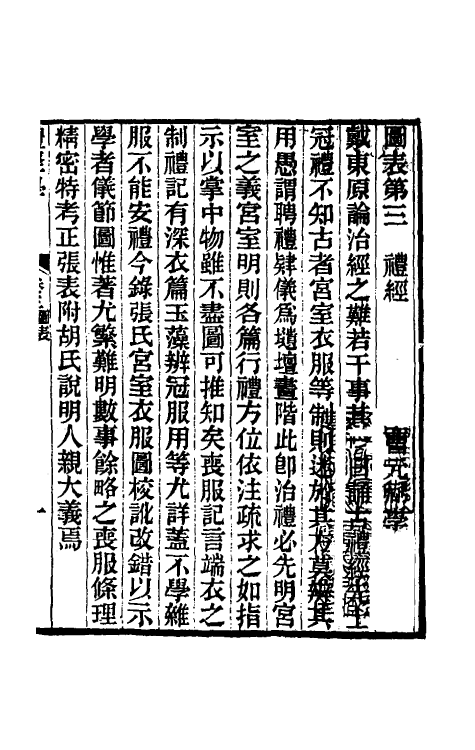 圖表第三　禮經　學
戴東原論治經之難若干事其一曰誦古禮經先士
冠禮不知古者宮室衣服等制則迷於其方莫辨其
用愚謂聘禮肄儀為壝壇畫階此即治禮必先明宮
室之義宮室明則各篇行禮方位依注疏求之如指
示以掌中物雖不盡圖可推知矣喪服記言端衣之
制禮記有深衣篇玉藻辨冠服用等尤詳蓋不學雜
服不能安禮今錄張氏宮室衣服圖校訛改錯以示
學者儀節圖惟著尤繁難明數事餘略之喪服條理
精密特考正張表附胡氏說明人親大義焉
圖表
一